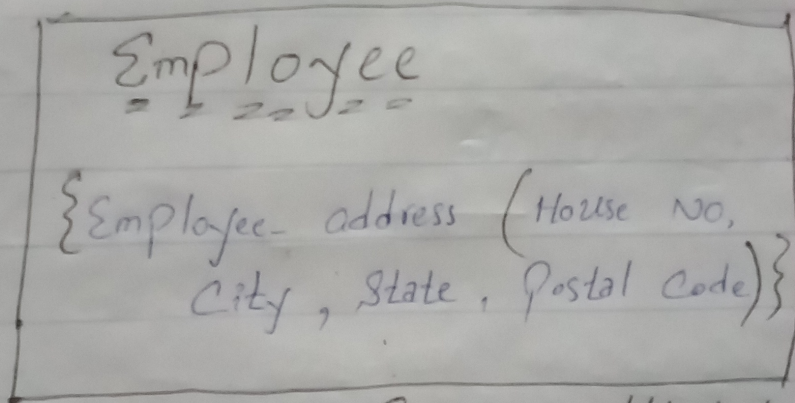 Employee
{Employee- address (House No,
City, State, Postal Code)}